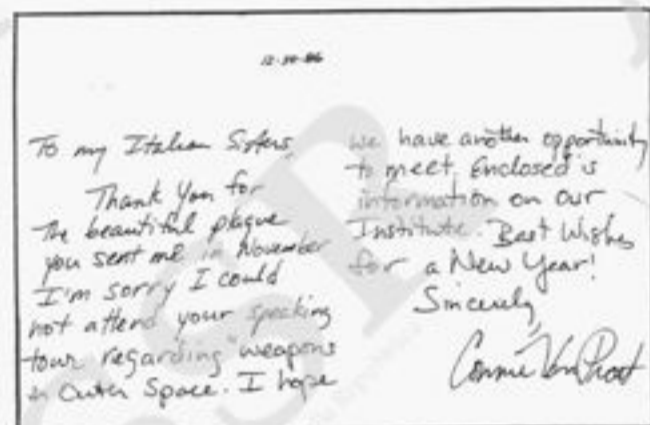 12-30-86
To my Italian Sisters,
Thank You for
the beautiful plaque
you sent me in November
I'm sorry I could
not attend your speaking
tour regarding "weapons
in Outer Space. I hope
we have another opportunity
to meet. Enclosed is
information on our
Institute. Best Wishes
for a New Year!
Sincerely,
Connie Van Praet